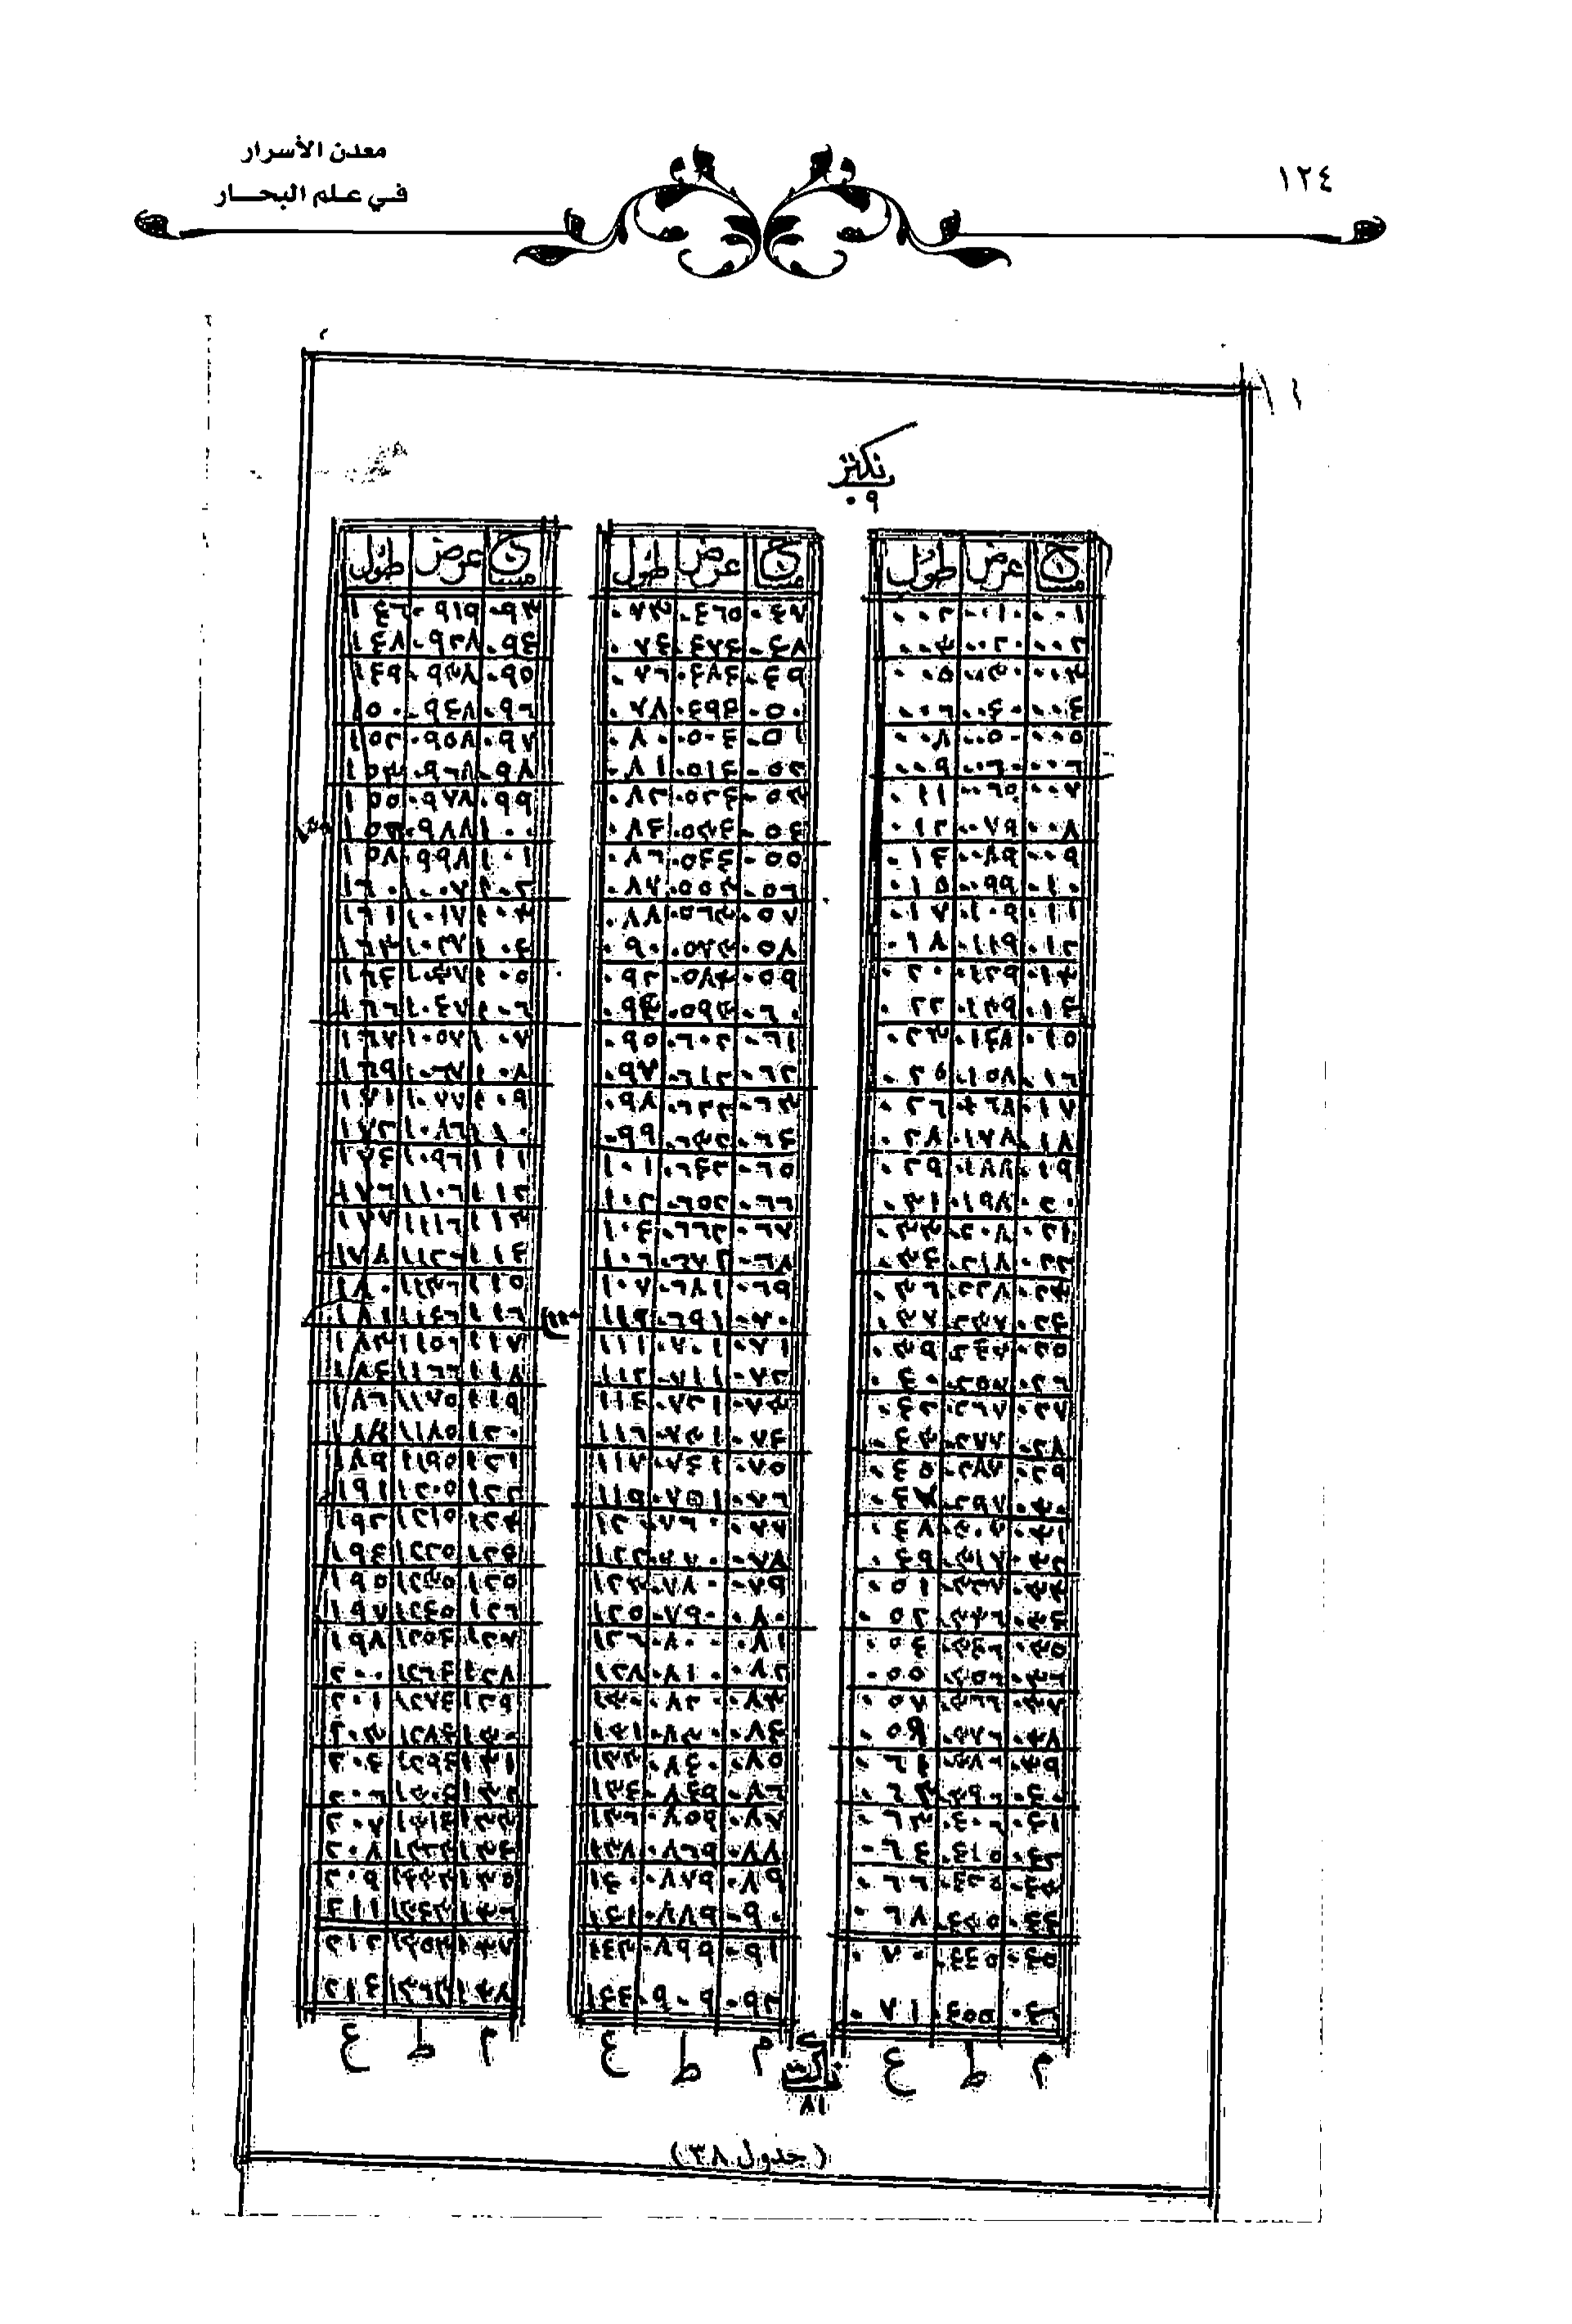 ١٢٤
معدن الأسرار
في علم البحار
١١
نكتر
٠٩
مسا عرض طول
٠٠١ ٠٠١٠ ٠٠٢
٠٠٢ ٠٠٢٠ ٠٠٣
٠٠٣ ٠٠٣٠ ٠٠٥
٠٠٤ ٠٠٤٠ ٠٠٦
٠٠٥ ٠٠٥٠ ٠٠٨
٠٠٦ ٠٠٦٠ ٠٠٩
٠٠٧ ٠٠٦٩ ٠١١
٠٠٨ ٠٠٧٩ ٠١٢
٠٠٩ ٠٠٨٩ ٠١٤
٠١٠ ٠٠٩٩ ٠١٥
٠١١ ٠١٠٩ ٠١٧
٠١٢ ٠١١٩ ٠١٨
٠١٣ ٠١٢٩ ٠٢٠
٠١٤ ٠١٣٩ ٠٢٢
٠١٥ ٠١٤٨ ٠٢٣
٠١٦ ٠١٥٨ ٠٢٥
٠١٧ ٠١٦٨ ٠٢٦
٠١٨ ٠١٧٨ ٠٢٨
٠١٩ ٠١٨٨ ٠٢٩
٠٢٠ ٠١٩٨ ٠٣١
٠٢١ ٠٢٠٨ ٠٣٣
٠٢٢ ٠٢١٨ ٠٣٤
٠٢٣ ٠٢٢٨ ٠٣٦
٠٢٤ ٠٢٣٧ ٠٣٧
٠٢٥ ٠٢٤٧ ٠٣٩
٠٢٦ ٠٢٥٧ ٠٤٠
٠٢٧ ٠٢٦٧ ٠٤٢
٠٢٨ ٠٢٧٧ ٠٤٣
٠٢٩ ٠٢٨٧ ٠٤٥
٠٣٠ ٠٢٩٧
٠٣١ ٠٣٠٧ ٠٤٨
٠٣٢ ٠٣١٧ ٠٤٩
٠٣٣ ٠٣٢٧ ٠٥١
٠٣٤ ٠٣٣٦ ٠٥٢
٠٣٥ ٠٣٤٦ ٠٥٤
٠٣٦ ٠٣٥٦ ٠٥٥
٠٣٧ ٠٣٦٦ ٠٥٧
٠٣٨ ٠٣٧٦ ٠٥٩
٠٣٩ ٠٣٨٦ ٠٦١
٠٤٠ ٠٣٩٦ ٠٦٢
٠٤١ ٠٤٠٦ ٠٦٣
٠٤٢ ٠٤١٥ ٠٦٤
٠٤٣ ٠٤٢٥ ٠٦٦
٠٤٤ ٠٤٣٥ ٠٦٨
٠٤٥ ٠٤٤٥ ٠٧٠
٠٤٦ ٠٤٥٥ ٠٧١
م ط ع
مسا عرض طول
٠٤٧ ٠٤٦٥ ٠٧٣
٠٤٨ ٠٤٧٤ ٠٧٤
٠٤٩ ٠٤٨٤ ٠٧٦
٠٥٠ ٠٤٩٤ ٠٧٨
٠٥١ ٠٥٠٤ ٠٨٠
٠٥٢ ٠٥١٤ ٠٨١
٠٥٣ ٠٥٢٤ ٠٨٢
٠٥٤ ٠٥٣٤ ٠٨٤
٠٥٥ ٠٥٤٤ ٠٨٦
٠٥٦ ٠٥٥٣ ٠٨٧
٠٥٧ ٠٥٦٣ ٠٨٨
٠٥٨ ٠٥٧٣ ٠٩٠
٠٥٩ ٠٥٨٣ ٠٩٢
٠٦٠ ٠٥٩٣ ٠٩٣
٠٦١ ٠٦٠٢ ٠٩٥
٠٦٢ ٠٦١٢ ٠٩٧
٠٦٣ ٠٦٢٢ ٠٩٨
٠٦٤ ٠٦٣٢ ٠٩٩
٠٦٥ ٠٦٤٢ ١٠١
٠٦٦ ٠٦٥٢ ١٠٢
٠٦٧ ٠٦٦٢ ١٠٤
٠٦٨ ٠٦٧٢ ١٠٦
٠٦٩ ٠٦٨١ ١٠٧
٠٧٠ ٠٦٩١
٠٧١ ٠٧٠١ ١١١
٠٧٢ ٠٧١١ ١١٢
٠٧٣ ٠٧٢١ ١١٤
٠٧٤ ٠٧٣١ ١١٦
٠٧٥ ٠٧٤١ ١١٧
٠٧٦ ٠٧٥١ ١١٩
٠٧٧ ٠٧٦٠ ١٢٠
٠٧٨ ٠٧٧٠ ١٢٢
٠٧٩ ٠٧٨٠ ١٢٣
٠٨٠ ٠٧٩٠ ١٢٥
٠٨١ ٠٨٠٠ ١٢٦
٠٨٢ ٠٨١٠ ١٢٨
٠٨٣ ٠٨٢٠ ١٣٠
٠٨٤ ٠٨٣٠ ١٣١
٠٨٥ ٠٨٤٠ ١٣٣
٠٨٦ ٠٨٤٩ ١٣٤
٠٨٧ ٠٨٥٩ ١٣٦
٠٨٨ ٠٨٦٩ ١٣٨
٠٨٩ ٠٨٧٩ ١٤٠
٠٩٠ ٠٨٨٩ ١٤١
٠٩١ ٠٨٩٩ ١٤٣
٠٩٢ ٠٩٠٩ ١٤٤
م ط ع
مسا عرض طول
٠٩٣ ٠٩١٩ ١٤٦
٠٩٤ ٠٩٢٨ ١٤٨
٠٩٥ ٠٩٣٨ ١٤٩
٠٩٦ ٠٩٤٨ ١٥٠
٠٩٧ ٠٩٥٨ ١٥٢
٠٩٨ ٠٩٦٨ ١٥٣
٠٩٩ ٠٩٧٨ ١٥٥
١٠٠ ٠٩٨٨
١٠١ ٠٩٩٨ ١٥٨
١٠٢ ١٠٠٧ ١٦٠
١٠٣ ١٠١٧ ١٦١
١٠٤ ١٠٢٧ ١٦٣
١٠٥ ١٠٣٧ ١٦٤
١٠٦ ١٠٤٧ ١٦٦
١٠٧ ١٠٥٧ ١٦٧
١٠٨ ١٠٦٧ ١٦٩
١٠٩ ١٠٧٧ ١٧١
١١٠ ١٠٨٦ ١٧٢
١١١ ١٠٩٦ ١٧٤
١١٢ ١١٠٦ ١٧٦
١١٣ ١١١٦ ١٧٧
١١٤ ١١٢٦ ١٧٨
١١٥ ١١٣٦ ١٨٠
١١٦ ١١٤٦ ١٨١
١١٧ ١١٥٦ ١٨٣
١١٨ ١١٦٦ ١٨٤
١١٩ ١١٧٥ ١٨٦
١٢٠ ١١٨٥ ١٨٨
١٢١ ١١٩٥ ١٨٩
١٢٢ ١٢٠٥ ١٩١
١٢٣ ١٢١٥ ١٩٢
١٢٤ ١٢٢٥ ١٩٤
١٢٥ ١٢٣٥ ١٩٥
١٢٦ ١٢٤٥ ١٩٧
١٢٧ ١٢٥٤ ١٩٨
١٢٨ ١٢٦٤ ٢٠٠
١٢٩ ١٢٧٤ ٢٠١
١٣٠ ١٢٨٤ ٢٠٣
١٣١ ١٢٩٤ ٢٠٤
١٣٢ ١٣٠٤ ٢٠٦
١٣٣ ١٣١٤ ٢٠٧
١٣٤ ١٣٢٣ ٢٠٨
١٣٥ ١٣٣٣ ٢٠٩
١٣٦ ١٣٤٣ ٢١١
١٣٧ ١٣٥٣ ٢١٢
١٣٨ ١٣٦٣ ٢١٤
م ط ع
٨١
(جدول ٣٨)